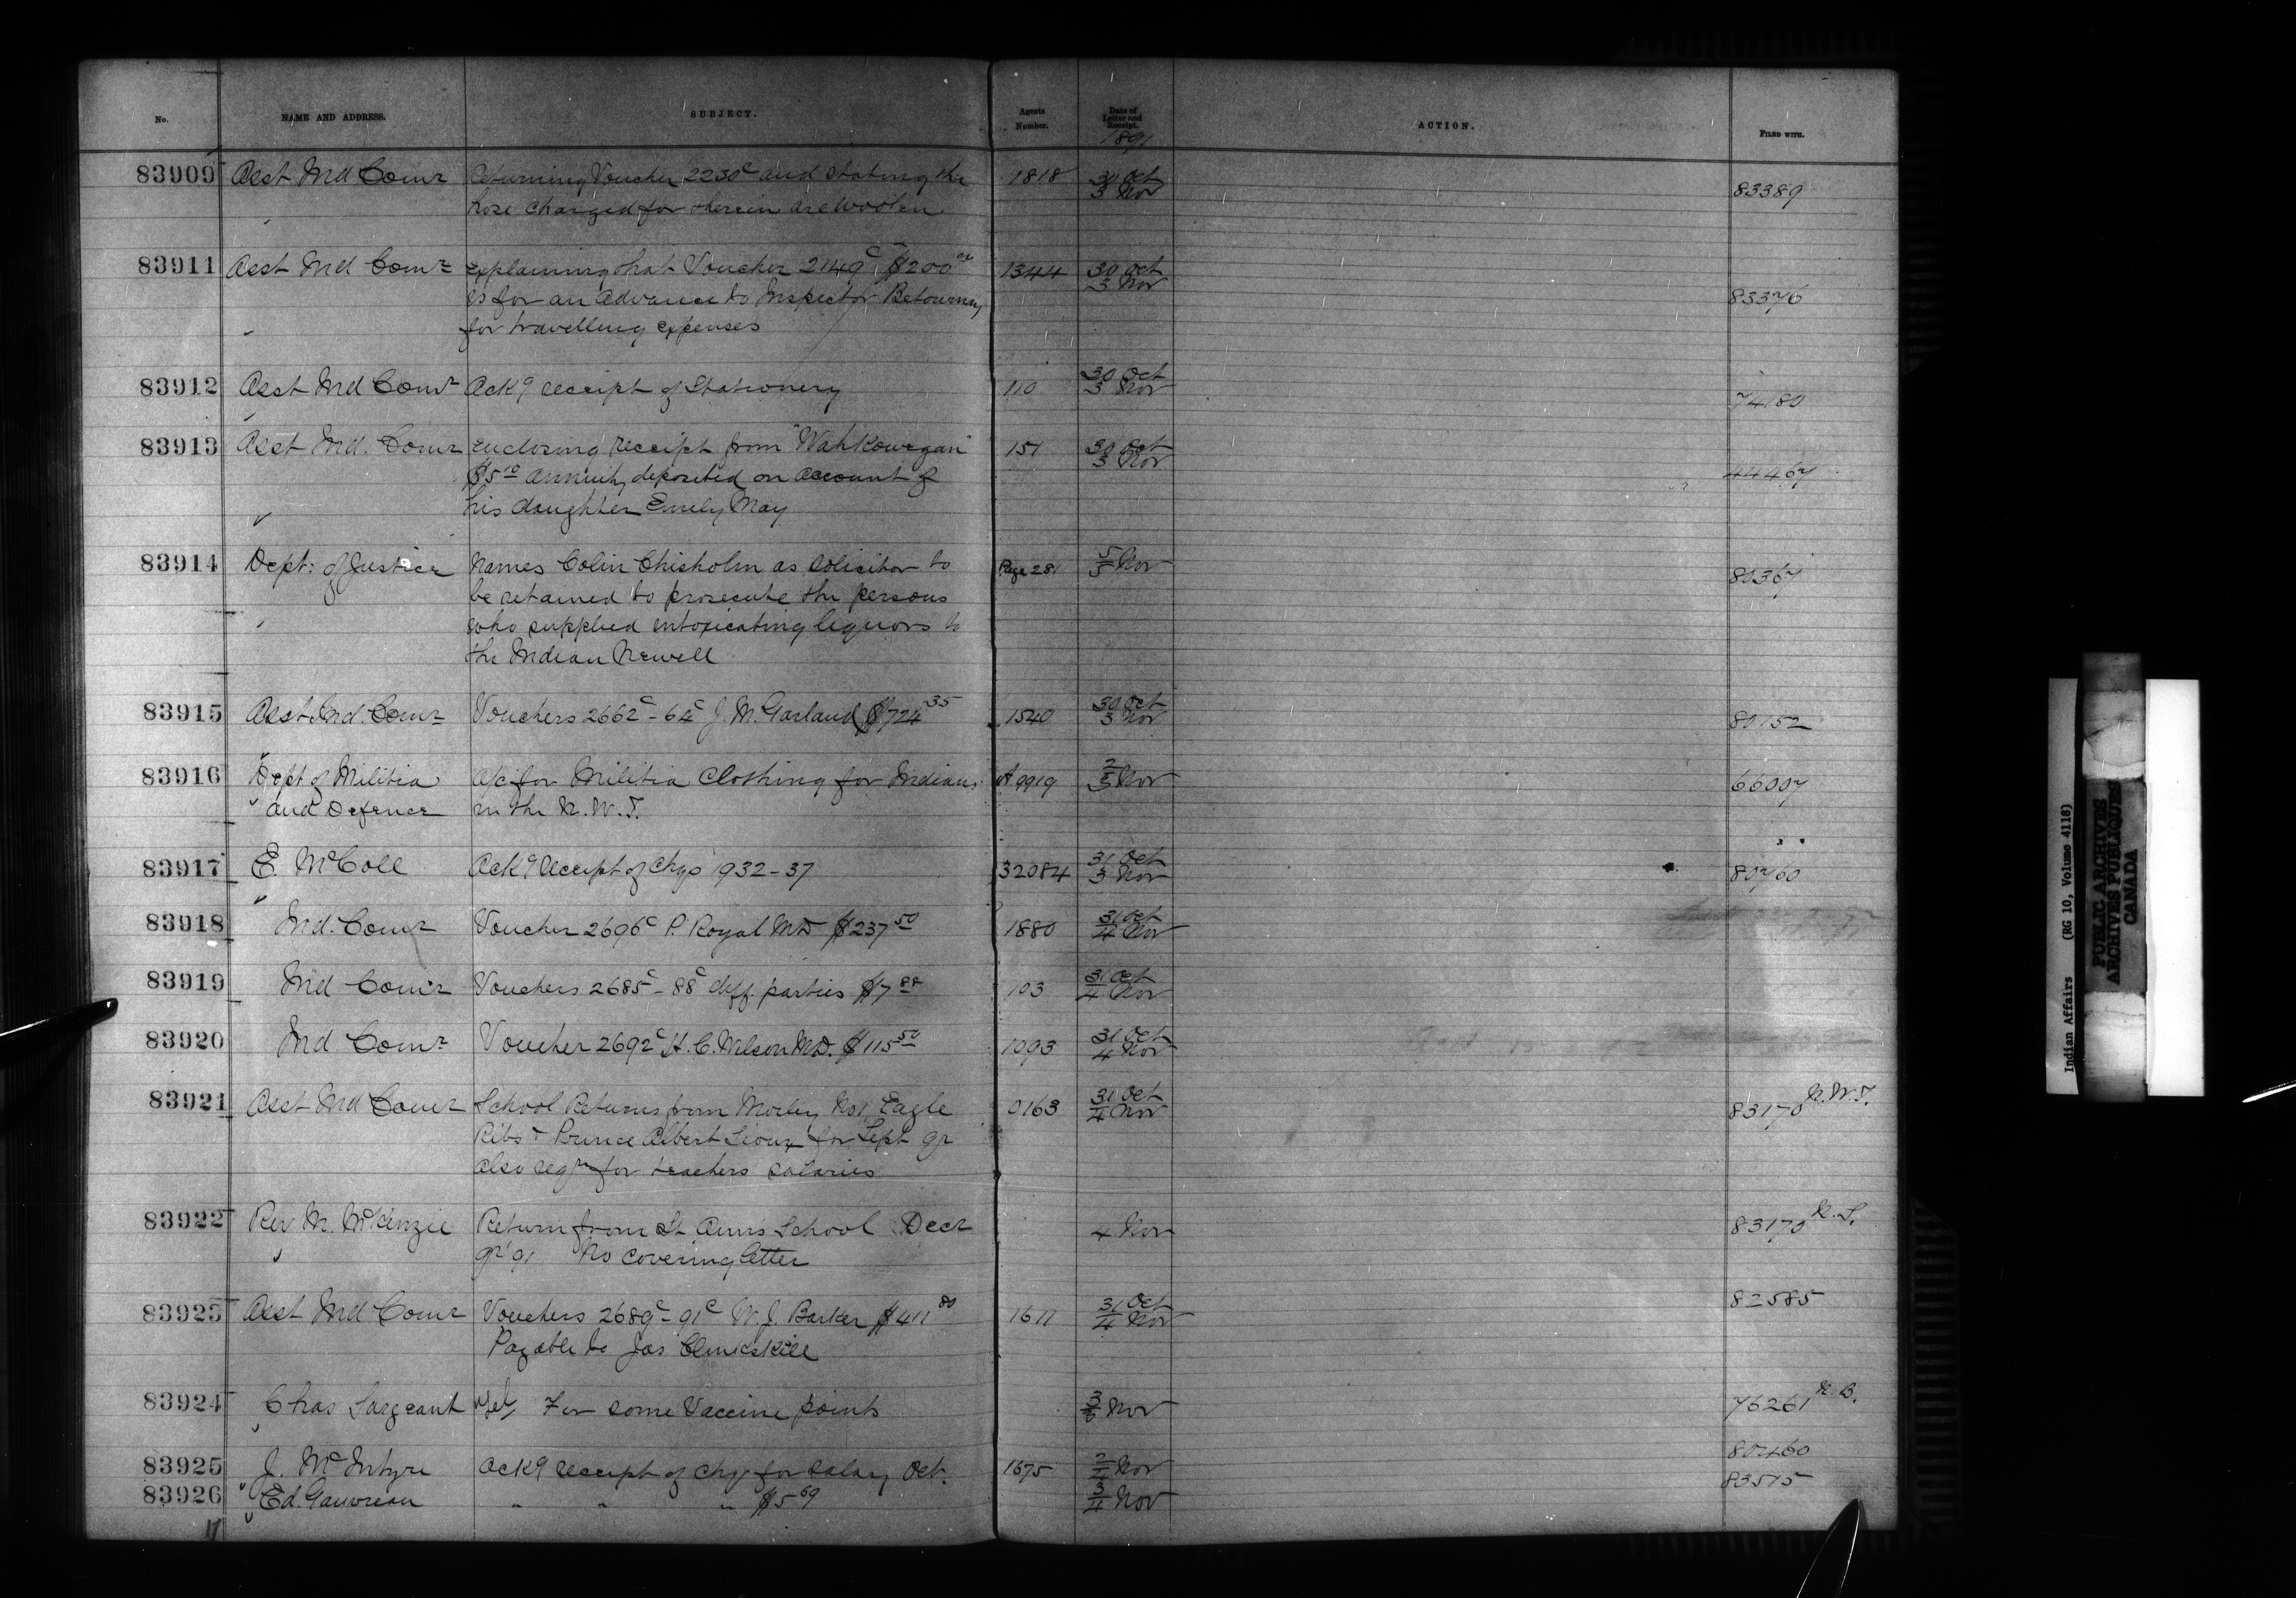 No. NAME AND ADDRESS. SUBJECT. Agents Number. Date of Letter and Receipt. 1891 ACTION. FILED WITH.
83909 Asst Ind Comr Returning Voucher 2230c and stating the 1818 30 Oct 3 Nov 83389
hose charged for therein are woolen
83911 Asst Ind Comr explaining that Voucher 2149c $200.00 1344 30 Oct 3 Nov 83376
is for an advance to Inspector Betournay
for travelling expenses
83912 Asst Ind Comr Ackg receipt of Stationery 110 30 Oct 3 Nov 74180
83913 Asst Ind. Comr enclosing receipt from "Wahkowegan" 151 30 Oct 3 Nov 44467
$5.10 annuity deposited on account of
his daughter Emely May
83914 Dept: of Justice Names Colin Chisholm as solicitor to Page 281 5/5 Nov 80367
be retained to prosecute the persons
who supplied intoxicating liquors to
the Indian Newell
83915 Asst Ind. Comr Vouchers 2662c-64c J. M. Garland $724.35 1540 30 Oct 3 Nov 80152
83916 Dept of Militia a/c for Militia Clothing for Indians A 9919 2/3 Nov 66007
" and Defence in the N.W.T.
83917 E. McColl Ackg Receipt of Chqs 1932-37 32084 31 Oct 3 Nov 80760
83918 Ind. Comr Voucher 2696c P. Royal MD $237.50 1880 31 Oct 4 Nov
83919 Ind Comr Vouchers 2685c-88c diff. parties $7.88 103 31 Oct 4 Nov
83920 Ind Comr Voucher 2692c H. C. Wilson MD. $115.50 1093 31 Oct 4 Nov
83921 Asst Ind Comr School Returns from Morley No1 Eagle 0163 31 Oct 4 Nov 83170 N.W.T.
Ribs & Prince Albert Sioux for Sept qr
also reqn for teachers salaries
83922 Rev M. McKenzie Return from St Anns School Decr 4 Nov 83170 N.S.
qr '91 No covering letter
83923 Asst Ind Comr Vouchers 2689c-91c W. J. Barker $411.80 1611 31 Oct 4 Nov 82585
Payable to Jas Clinkskill
83924 Chas Sargeant Tel, For some Vaccine points 3/3 Nov 76261 N.B.
83925 J. McIntyre Ackg receipt of chq for salary Oct. 1675 2/4 Nov 80460
83926 " Ed. Gauvreau " " " $5.69 3/4 Nov 83515
Indian Affairs (RG 10, Volume 4118)
PUBLIC ARCHIVES
ARCHIVES PUBLIQUES
CANADA